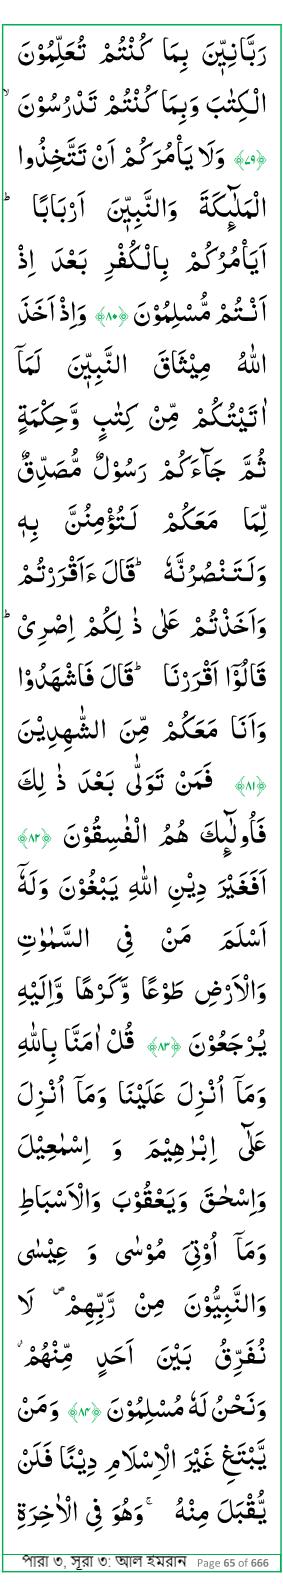 رَبَّانِيّٖنَ بِمَا كُنْتُمْ تُعَلِّمُوْنَ
الْكِتٰبَ وَبِمَا كُنْتُمْ تَدْرُسُوْنَ ۙ
﴿٧٩﴾ وَلَا يَاْمُرَكُمْ اَنْ تَتَّخِذُوا
الْمَلٰٓئِكَةَ وَالنَّبِيّٖنَ اَرْبَابًا ؕ
اَيَاْمُرُكُمْ بِالْكُفْرِ بَعْدَ اِذْ
اَنْتُمْ مُّسْلِمُوْنَ ﴿٨٠﴾ وَاِذْ اَخَذَ
اللّٰهُ مِيْثَاقَ النَّبِيّٖنَ لَمَاۤ
اٰتَيْتُكُمْ مِّنْ كِتٰبٍ وَّحِكْمَةٍ
ثُمَّ جَآءَكُمْ رَسُوْلٌ مُّصَدِّقٌ
لِّمَا مَعَكُمْ لَتُؤْمِنُنَّ بِهٖ
وَلَتَنْصُرُنَّهٗ ؕ قَالَ ءَاَقْرَرْتُمْ
وَاَخَذْتُمْ عَلٰى ذٰ لِكُمْ اِصْرِىْ ؕ
قَالُوْۤا اَقْرَرْنَا ؕ قَالَ فَاشْهَدُوْا
وَاَنَا مَعَكُمْ مِّنَ الشّٰهِدِيْنَ
﴿٨١﴾ فَمَنْ تَوَلّٰى بَعْدَ ذٰ لِكَ
فَاُولٰٓئِكَ هُمُ الْفٰسِقُوْنَ ﴿٨٢﴾
اَفَغَيْرَ دِيْنِ اللّٰهِ يَبْغُوْنَ وَلَهٗۤ
اَسْلَمَ مَنْ فِى السَّمٰوٰتِ
وَالْاَرْضِ طَوْعًا وَّكَرْهًا وَّاِلَيْهِ
يُرْجَعُوْنَ ﴿٨٣﴾ قُلْ اٰمَنَّا بِاللّٰهِ
وَمَاۤ اُنْزِلَ عَلَيْنَا وَمَاۤ اُنْزِلَ
عَلٰٓى اِبْرٰهِيْمَ وَ اِسْمٰعِيْلَ
وَاِسْحٰقَ وَيَعْقُوْبَ وَالْاَسْبَاطِ
وَمَاۤ اُوْتِىَ مُوْسٰى وَ عِيْسٰى
وَالنَّبِيُّوْنَ مِنْ رَّبِّهِمْ ۖ لَا
نُفَرِّقُ بَيْنَ اَحَدٍ مِّنْهُمْ ؗ
وَنَحْنُ لَهٗ مُسْلِمُوْنَ ﴿٨٤﴾ وَمَنْ
يَّبْتَغِ غَيْرَ الْاِسْلَامِ دِيْنًا فَلَنْ
يُّقْبَلَ مِنْهُ ۚ وَهُوَ فِى الْاٰخِرَةِ
পারা ৩, সূরা ৩: আল ইমরান Page 65 of 666